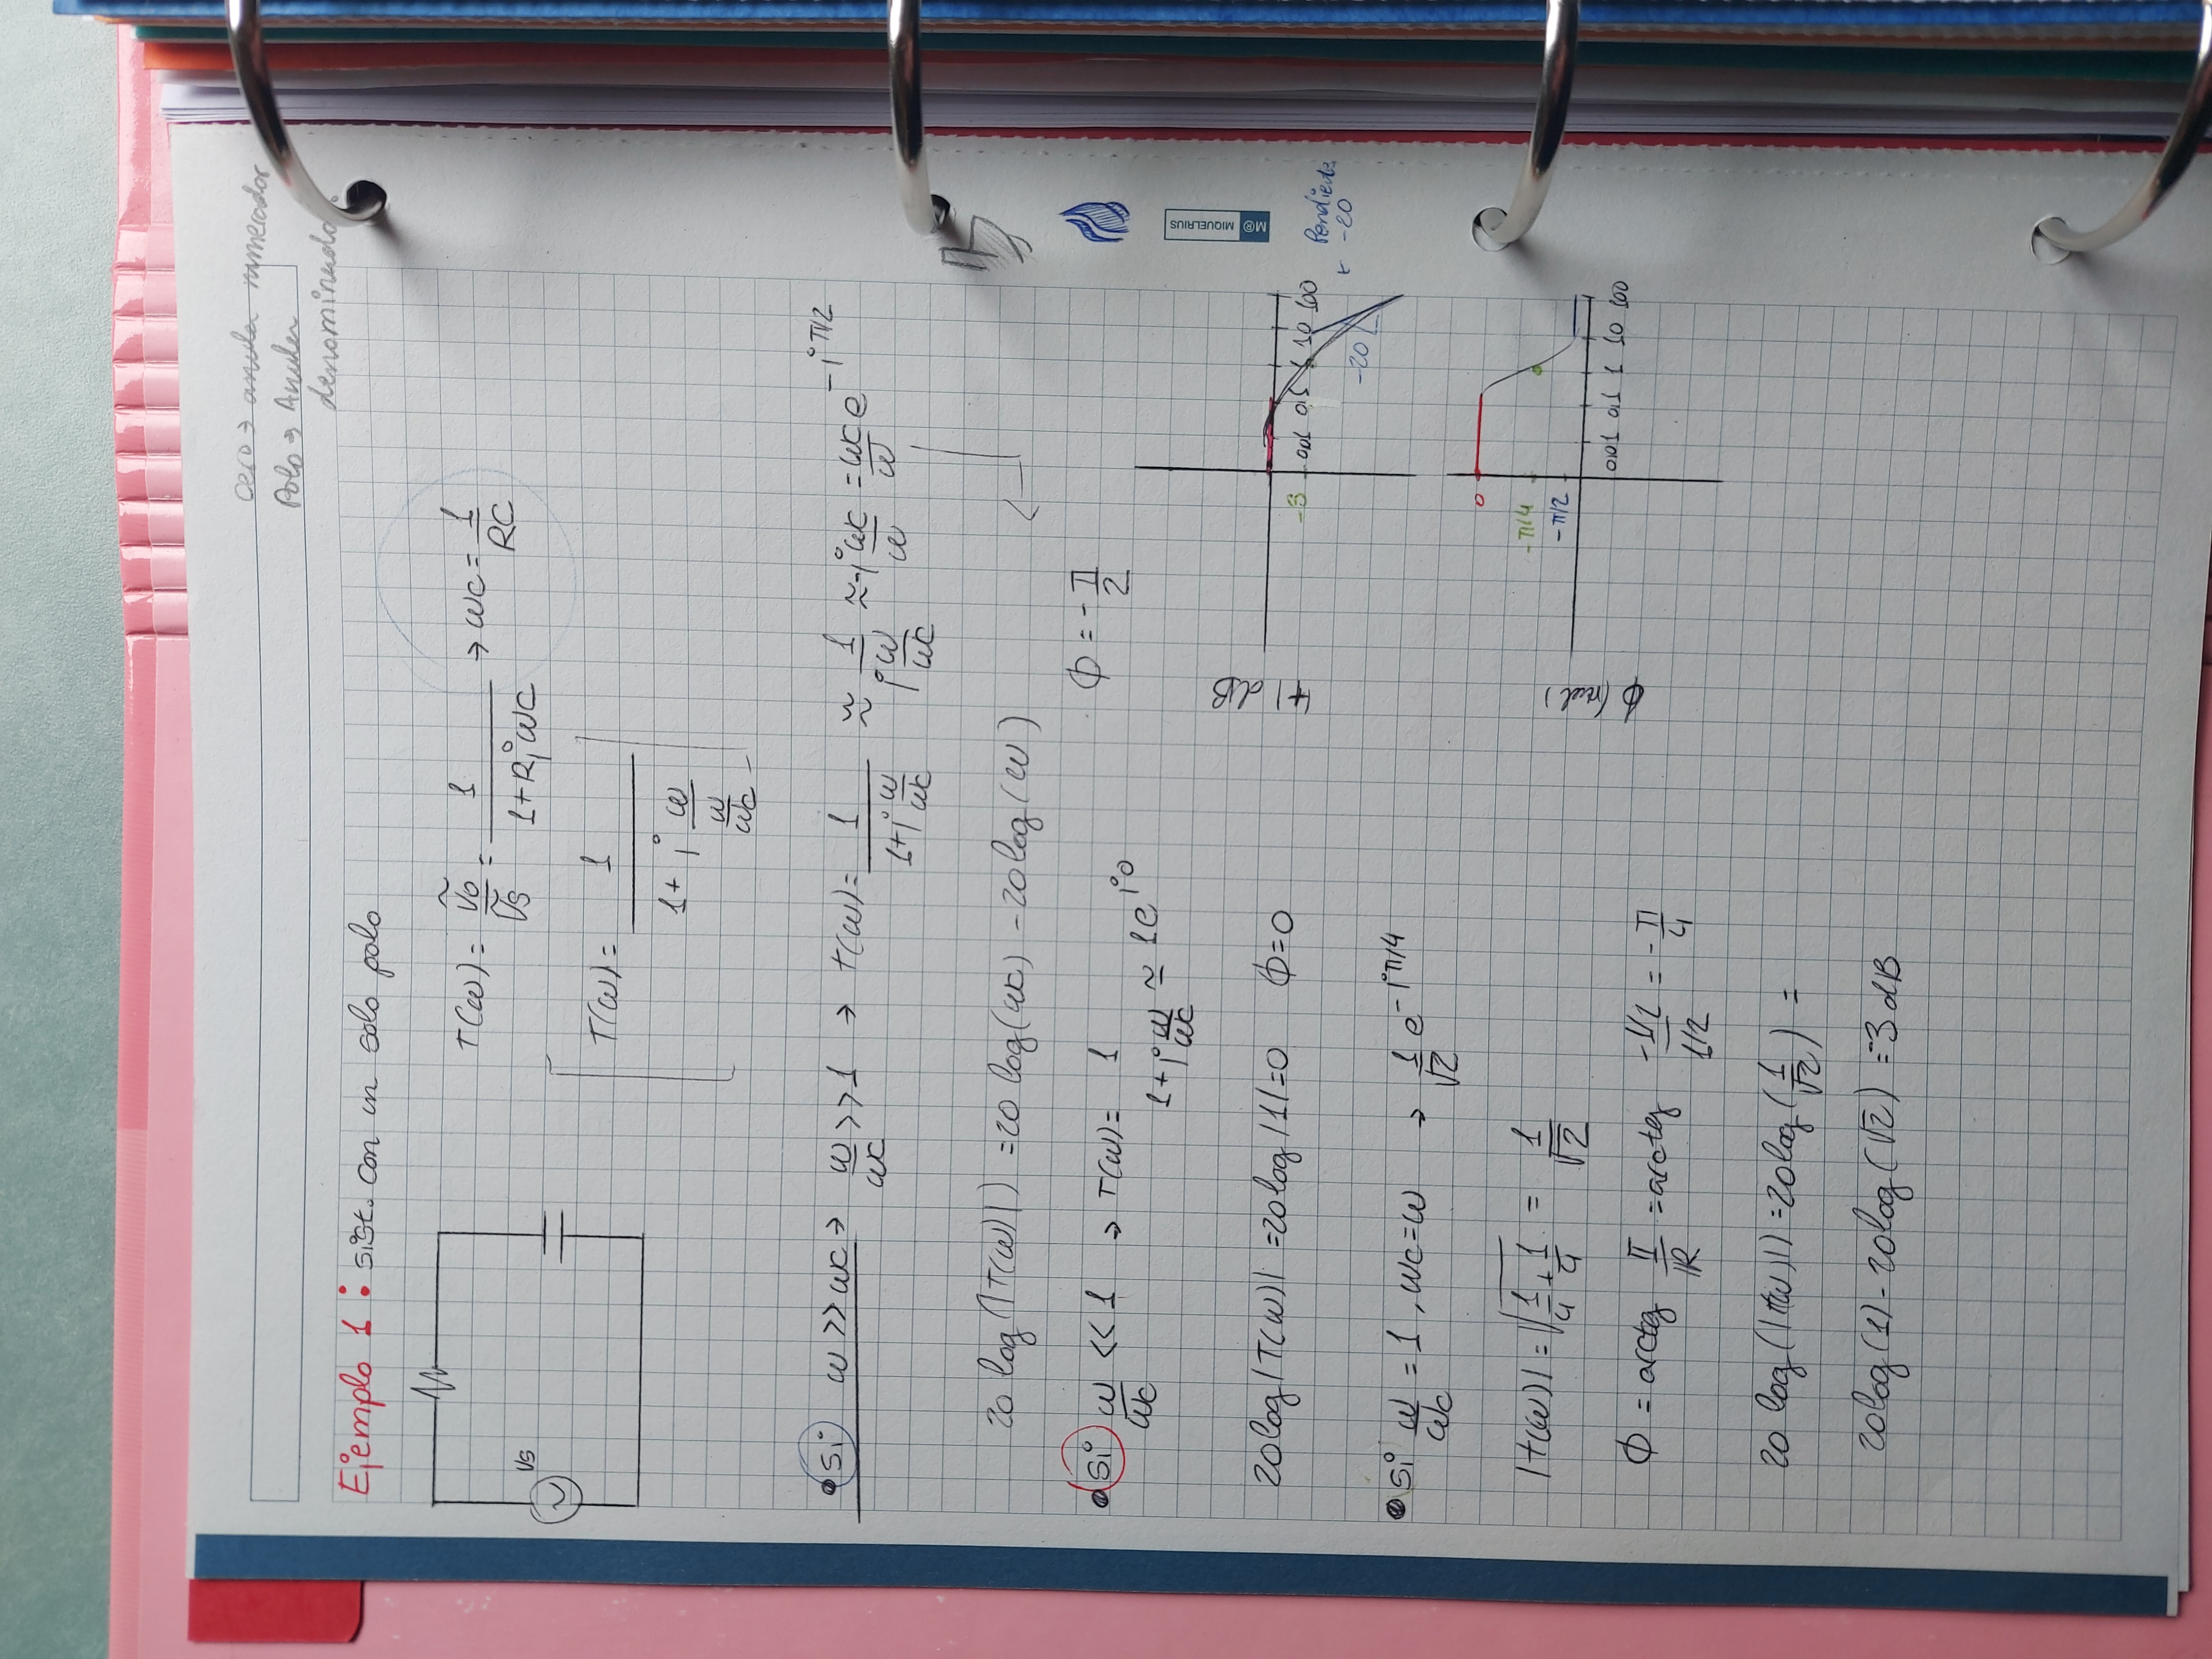 cero → anula numerador
Polo → Anular
denominador
Ejemplo 1: sist. Con un solo polo
Vs
T(ω) = Ṽo/Ṽs = 1/(1+RjωC) → ωc = 1/RC
T(ω) = 1/(1+j ω/(ω/ωc))
• Si ω >> ωc → ω/ωc >> 1 → T(ω) = 1/(1+j ω/ωc) ≈ 1/(j ω/ωc) ≈ -j ωc/ω = ωc/ω e^(-jπ/2)
20 log(|T(ω)|) = 20 log(ωc) - 20 log(ω)
ϕ = -π/2
• Si ω/ωc << 1 → T(ω) = 1/(1+j ω/ωc) ≃ 1e^(j0)
20 log|T(ω)| = 20 log|1| = 0 ϕ = 0
• Si ω/ωc = 1, ωc = ω → 1/√2 e^(-jπ/4)
|T(ω)| = √(1/4 + 1/4) = 1/√2
ϕ = arctg II/IR = arctg (-1/2)/(1/2) = -π/4
20 log(|T(ω)|) = 20 log(1/√2) =
20 log(1) - 20 log(√2) = -3 dB
|T| dB
-3
0,01 0,1 1 10 100
-20
Pendiente
-20
ϕ (rad)
0
-π/4
-π/2
0,01 0,1 1 10 100
M® MIQUELRIUS